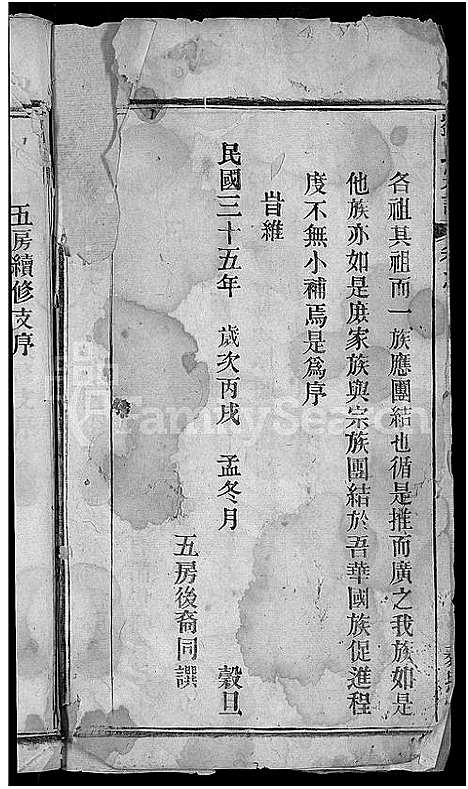 各祖其祖而一族應團結也循是推而廣之我族如是
他族亦如是庶家族與宗族團結於吾華國族促進程
度不無小補焉是爲序
旹維
民國三十五年　歲次丙戌　孟冬月　穀旦
五房後裔同譔
五房續修支序
FamilySearch